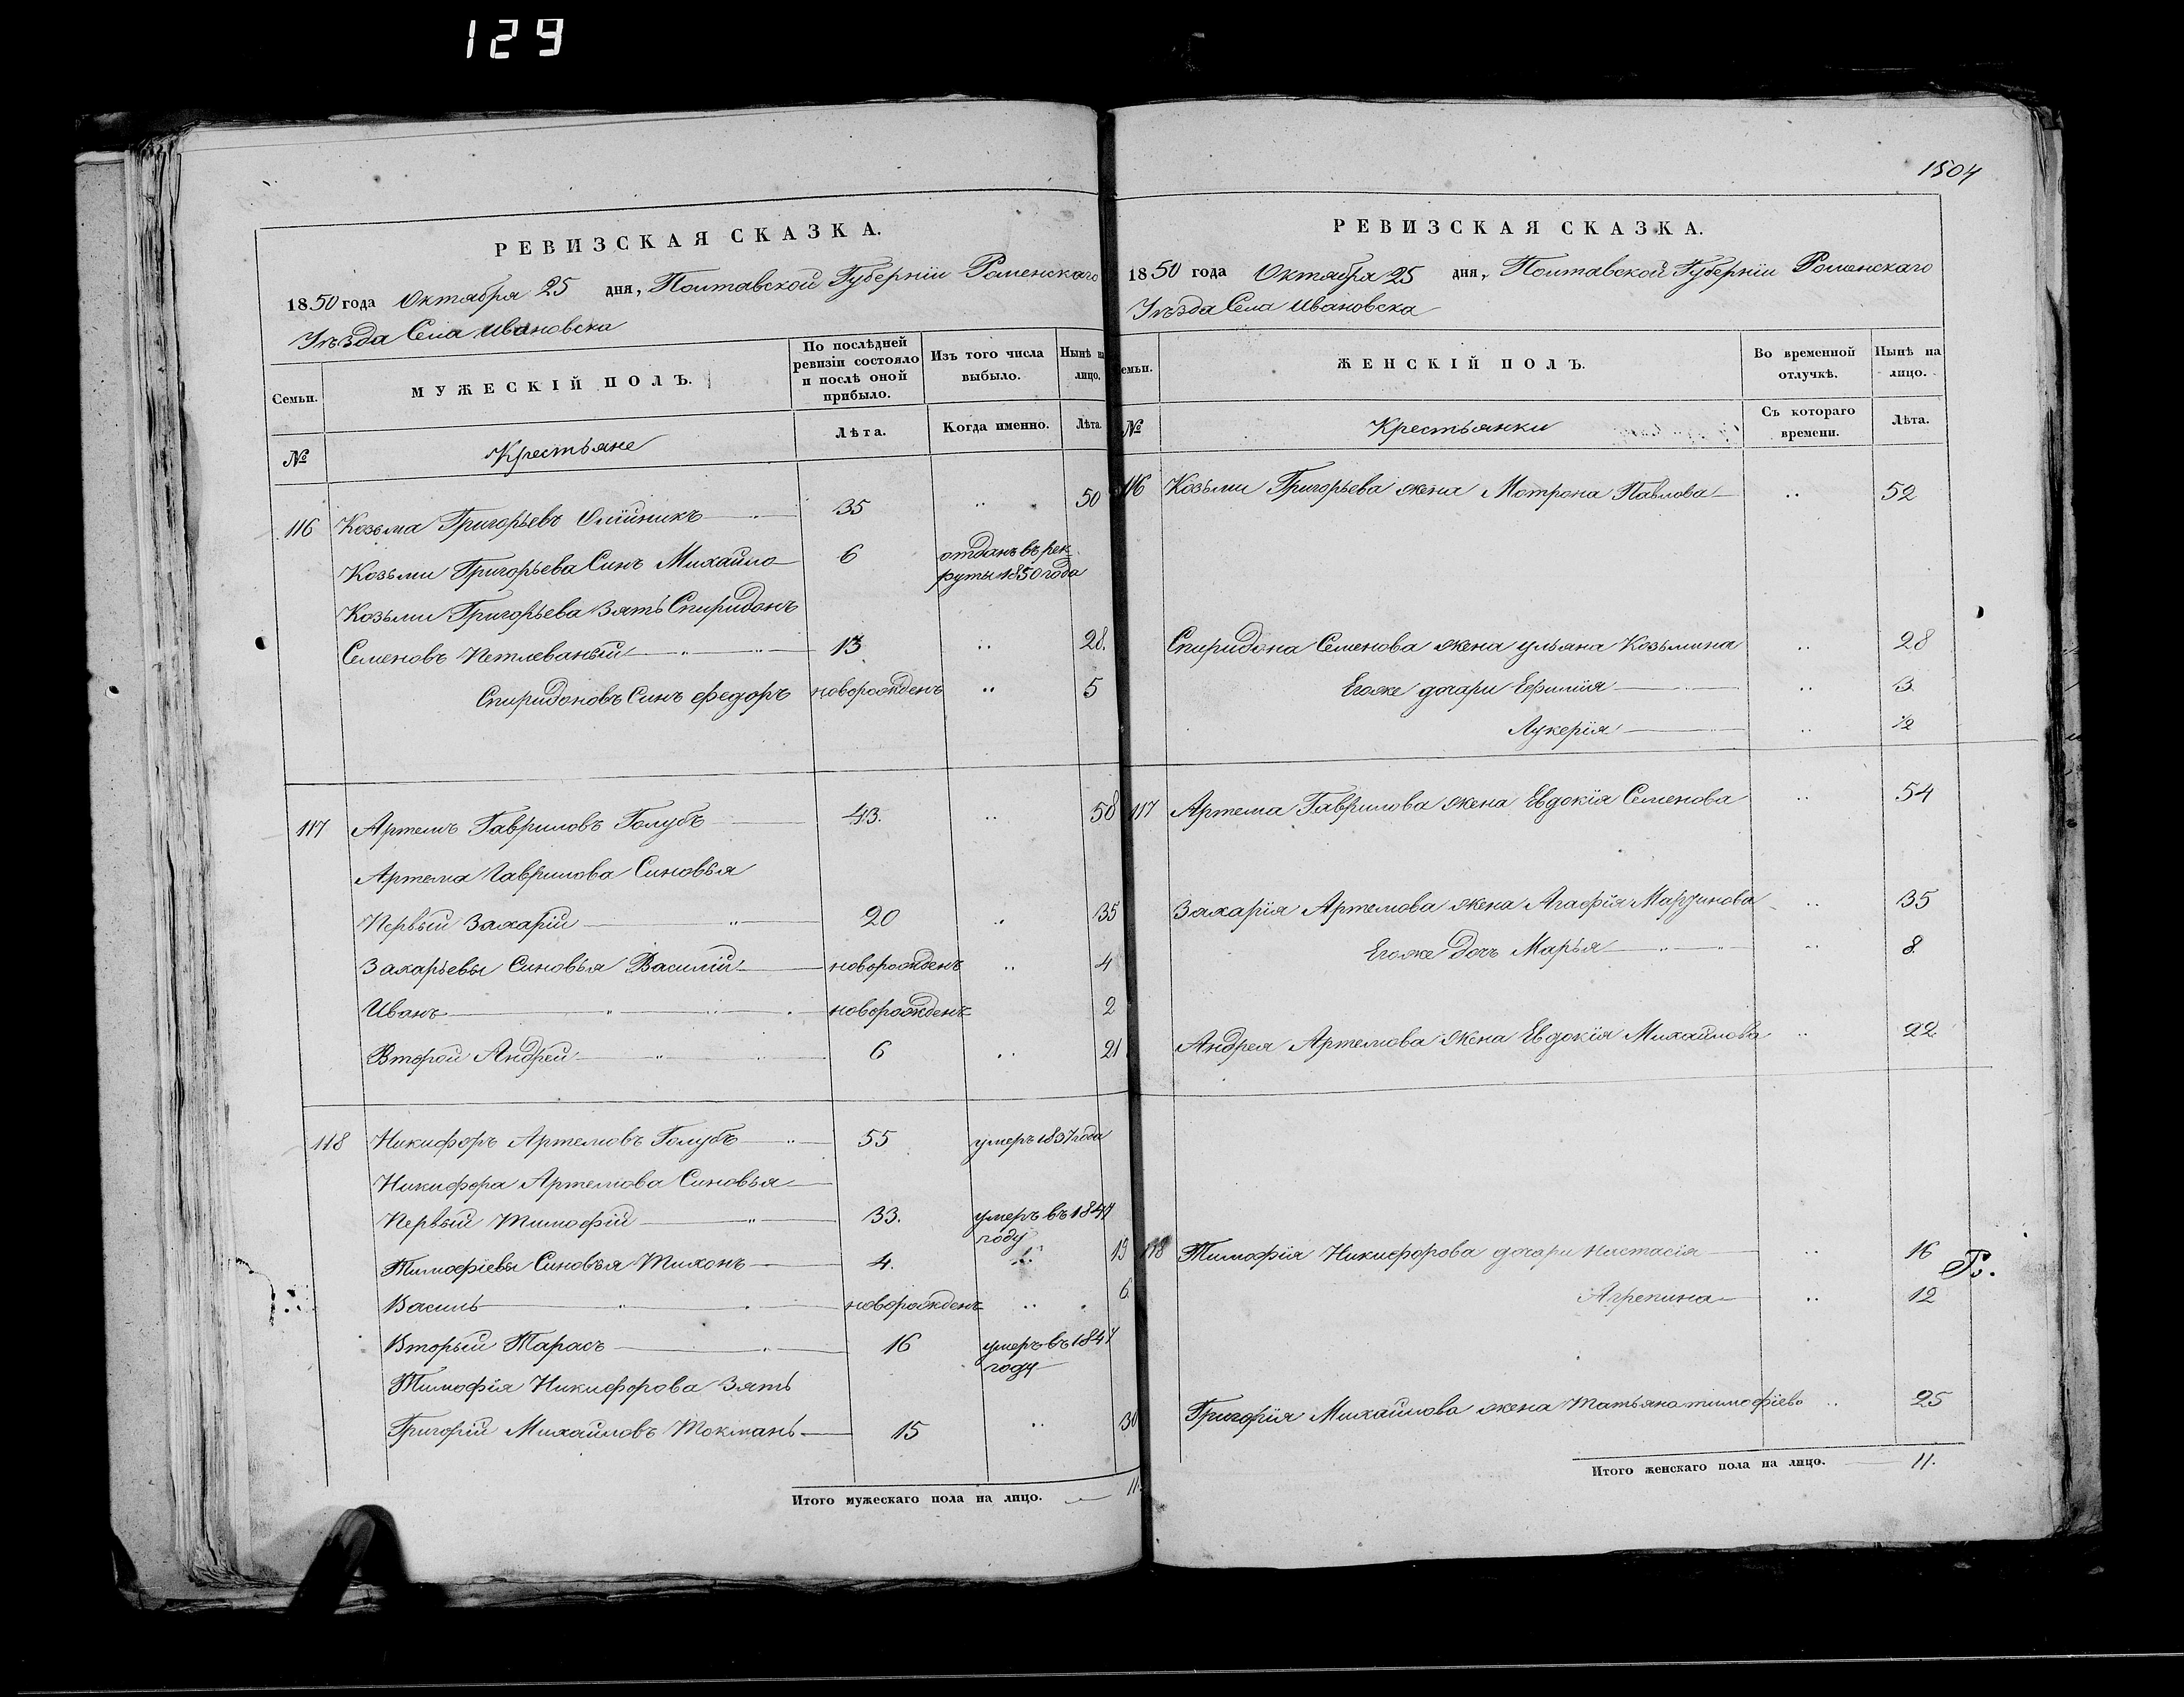 129
РЕВИЗСКАЯ СКАЗКА.
1850 года Октября 25 дня, Полтавской Губернiи Роменскаго
Уѣзда Села Ивановска
Семьи.
МУЖЕСКIЙ ПОЛЪ.
По послѣдней ревизiи состояло и послѣ оной прибыло.
Изъ того числа выбыло.
Нынѣ на лицо.
№
Крестьяне
Лѣта.
Когда именно.
Лѣта.
116 Козьма Григорьевъ Олiйникъ 35 50
Козьми Григорьева Синъ Михайло 6 отданъ въ рек-
руты 1850 года
Козьми Григорьева Зять Спиридонъ
Семеновъ Петлеваный 13 28.
Спиридоновъ Синъ Федоръ новорожденъ 5
117 Артемъ Гавриловъ Голубъ 43. 58
Артема Гаврилова Синовья
Первый Захарiй 20 35
Захарьевы Синовья Василiй новорожденъ 4
Иванъ новорожденъ 2
Второй Андрей 6 21
118 Никифоръ Артемовъ Голубъ 55 умеръ 1837 года
Никифора Артемова Синовья
Первый Тимофiй 33. умеръ въ 1847
году
Тимофiевы Синовья Тихонъ 4. 19
Василь новорожденъ 6
Вторый Тарасъ 16 умеръ въ 1847
году
Тимофiя Никифорова Зять
Григорiй Михайловъ Токмань 15 30
Итого мужескаго пола на лицо. 11.
1504
РЕВИЗСКАЯ СКАЗКА.
1850 года Октября 25 дня, Полтавской Губернiи Роменскаго
Уѣзда Села Ивановска
емьи.
ЖЕНСКIЙ ПОЛЪ.
Во временной отлучкѣ.
Нынѣ на лицо.
№
Крестьянки
Съ котораго времени.
Лѣта.
116 Козьми Григорьева жена Мотрона Павлова 52
Спиридона Семенова жена ульяна Козьмина 28
Егоже дочери Ефимiя 3.
Лукерiя 1/2
117 Артема Гаврилова жена Евдокiя Семенова 54
Захарiя Артемова жена Агафiя 35
Егоже дочъ Марья 8.
Андрея Артемова жена Евдокiя Михайлова 22
118 Тимофiя Никифорова дочери Настасiя 16
Агрепина 12
Григорiя Михайлова жена Татьяна тимофiева 25
Итого женскаго пола на лицо. 11.